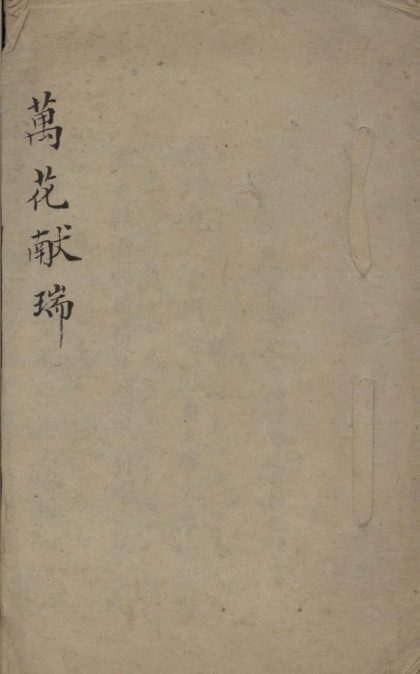 萬花献瑞